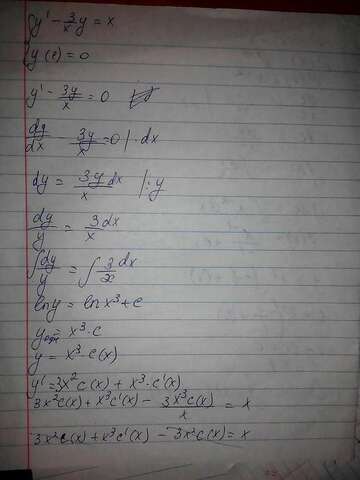 {y' - 3/x y = x
y(e) = 0
y' - 3y/x = 0
dy/dx - 3y/x = 0 | · dx
dy = 3y/x dx | : y
dy/y = 3dx/x
∫ dy/y = ∫ 3/x dx
ln y = ln x³ + c
= x³ · c
y = x³ · c(x)
y' = 3x² c(x) + x³ · c'(x)
3x² c(x) + x³ c'(x) - 3x³ c(x)/x = x
3x² c(x) + x³ c'(x) - 3x² c(x) = x